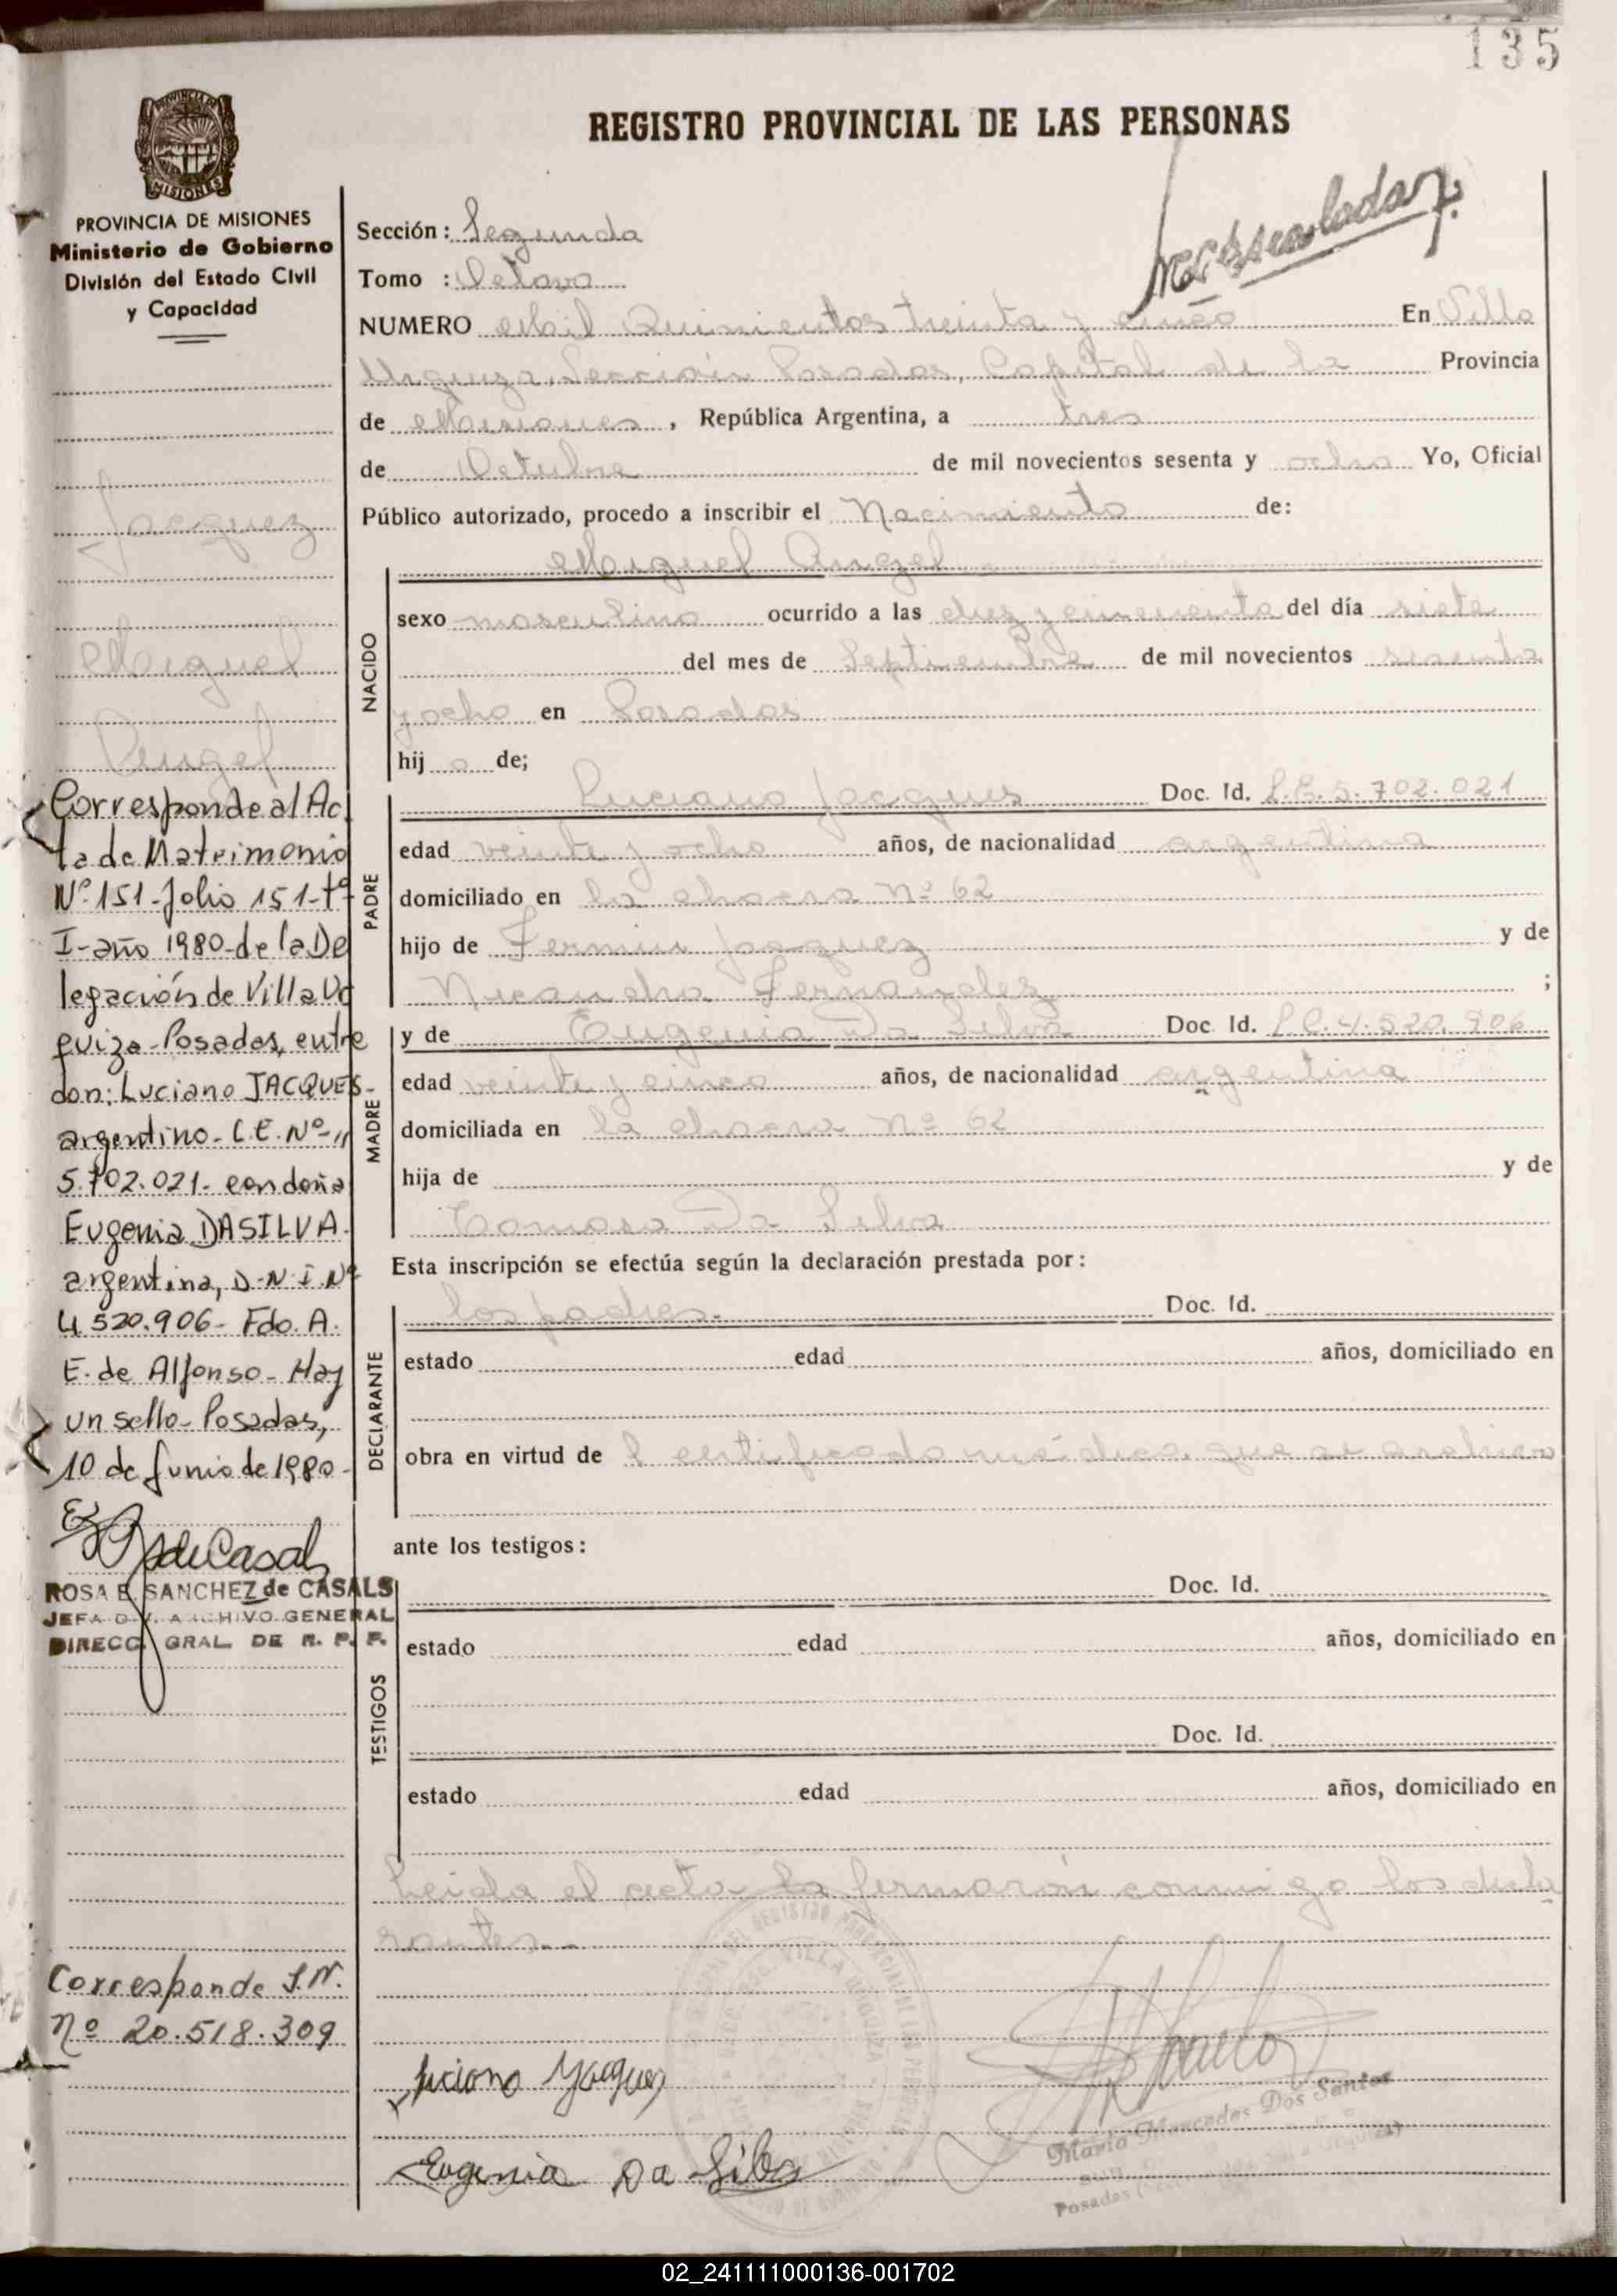 135
REGISTRO PROVINCIAL DE LAS PERSONAS
PROVINCIA DE MISIONES
MISIONES
PROVINCIA DE MISIONES
Ministerio de Gobierno
División del Estado Civil
y Capacidad
Jacquez
Miguel
Angel
Corresponde al Ac
ta de Matrimonio
Nº 151-folio 151-tº
I-año 1980-de la De
legación de Villa Ur
quiza-Posadas, entre
don: Luciano JACQUES-
argentino- L.E. Nº-
5.702.021- con doña
Eugenia DASILVA-
argentina, D.N.I. Nº
4.520.906- Fdo. A.
E. de Alfonso- Hay
un sello- Posadas,
10 de Junio de 1980-
ROSA E. SANCHEZ de CASALS
JEFA DIV. ARCHIVO GENERAL
DIRECC. GRAL. DE R. P. P.
Corresponde I.N.
nº 20.518.309
Sección: Segunda
Tomo : Octavo
NUMERO Mil Quinientos treinta y cinco En Villa
Urquiza, Sección Posadas, Capital de la Provincia
de Misiones, República Argentina, a tres
de Octubre de mil novecientos sesenta y ocho Yo, Oficial
Público autorizado, procedo a inscribir el Nacimiento de:
NACIDO
Miguel Angel
sexo masculino ocurrido a las diez y cincuenta del día siete
del mes de Septiembre de mil novecientos sesenta
y ocho en Posadas
hij o de;
PADRE
Luciano Jacques Doc. Id. L.E. 5.702.021
edad veinte y ocho años, de nacionalidad argentina
domiciliado en la chacra Nº 62
hijo de Fermin Jaquez y de
Nicandra Fernandez ;
MADRE
y de Eugenia Da Silva Doc. Id. L.C. 4.520.906
edad veinte y cinco años, de nacionalidad argentina
domiciliada en la chacra Nº 62
hija de y de
Tomasa Da Silva
Esta inscripción se efectúa según la declaración prestada por:
DECLARANTE
los padres. Doc. Id.
estado edad años, domiciliado en
obra en virtud de l certificado médico que se archiva
ante los testigos:
TESTIGOS
Doc. Id.
estado edad años, domiciliado en
Doc. Id.
estado edad años, domiciliado en
Leida el acta la firmaron conmigo los decla
rantes.-
Luciano Yacques
Eugenia Da Silva
Maria Mercedes Dos Santos
Posadas
02_241111000136-001702